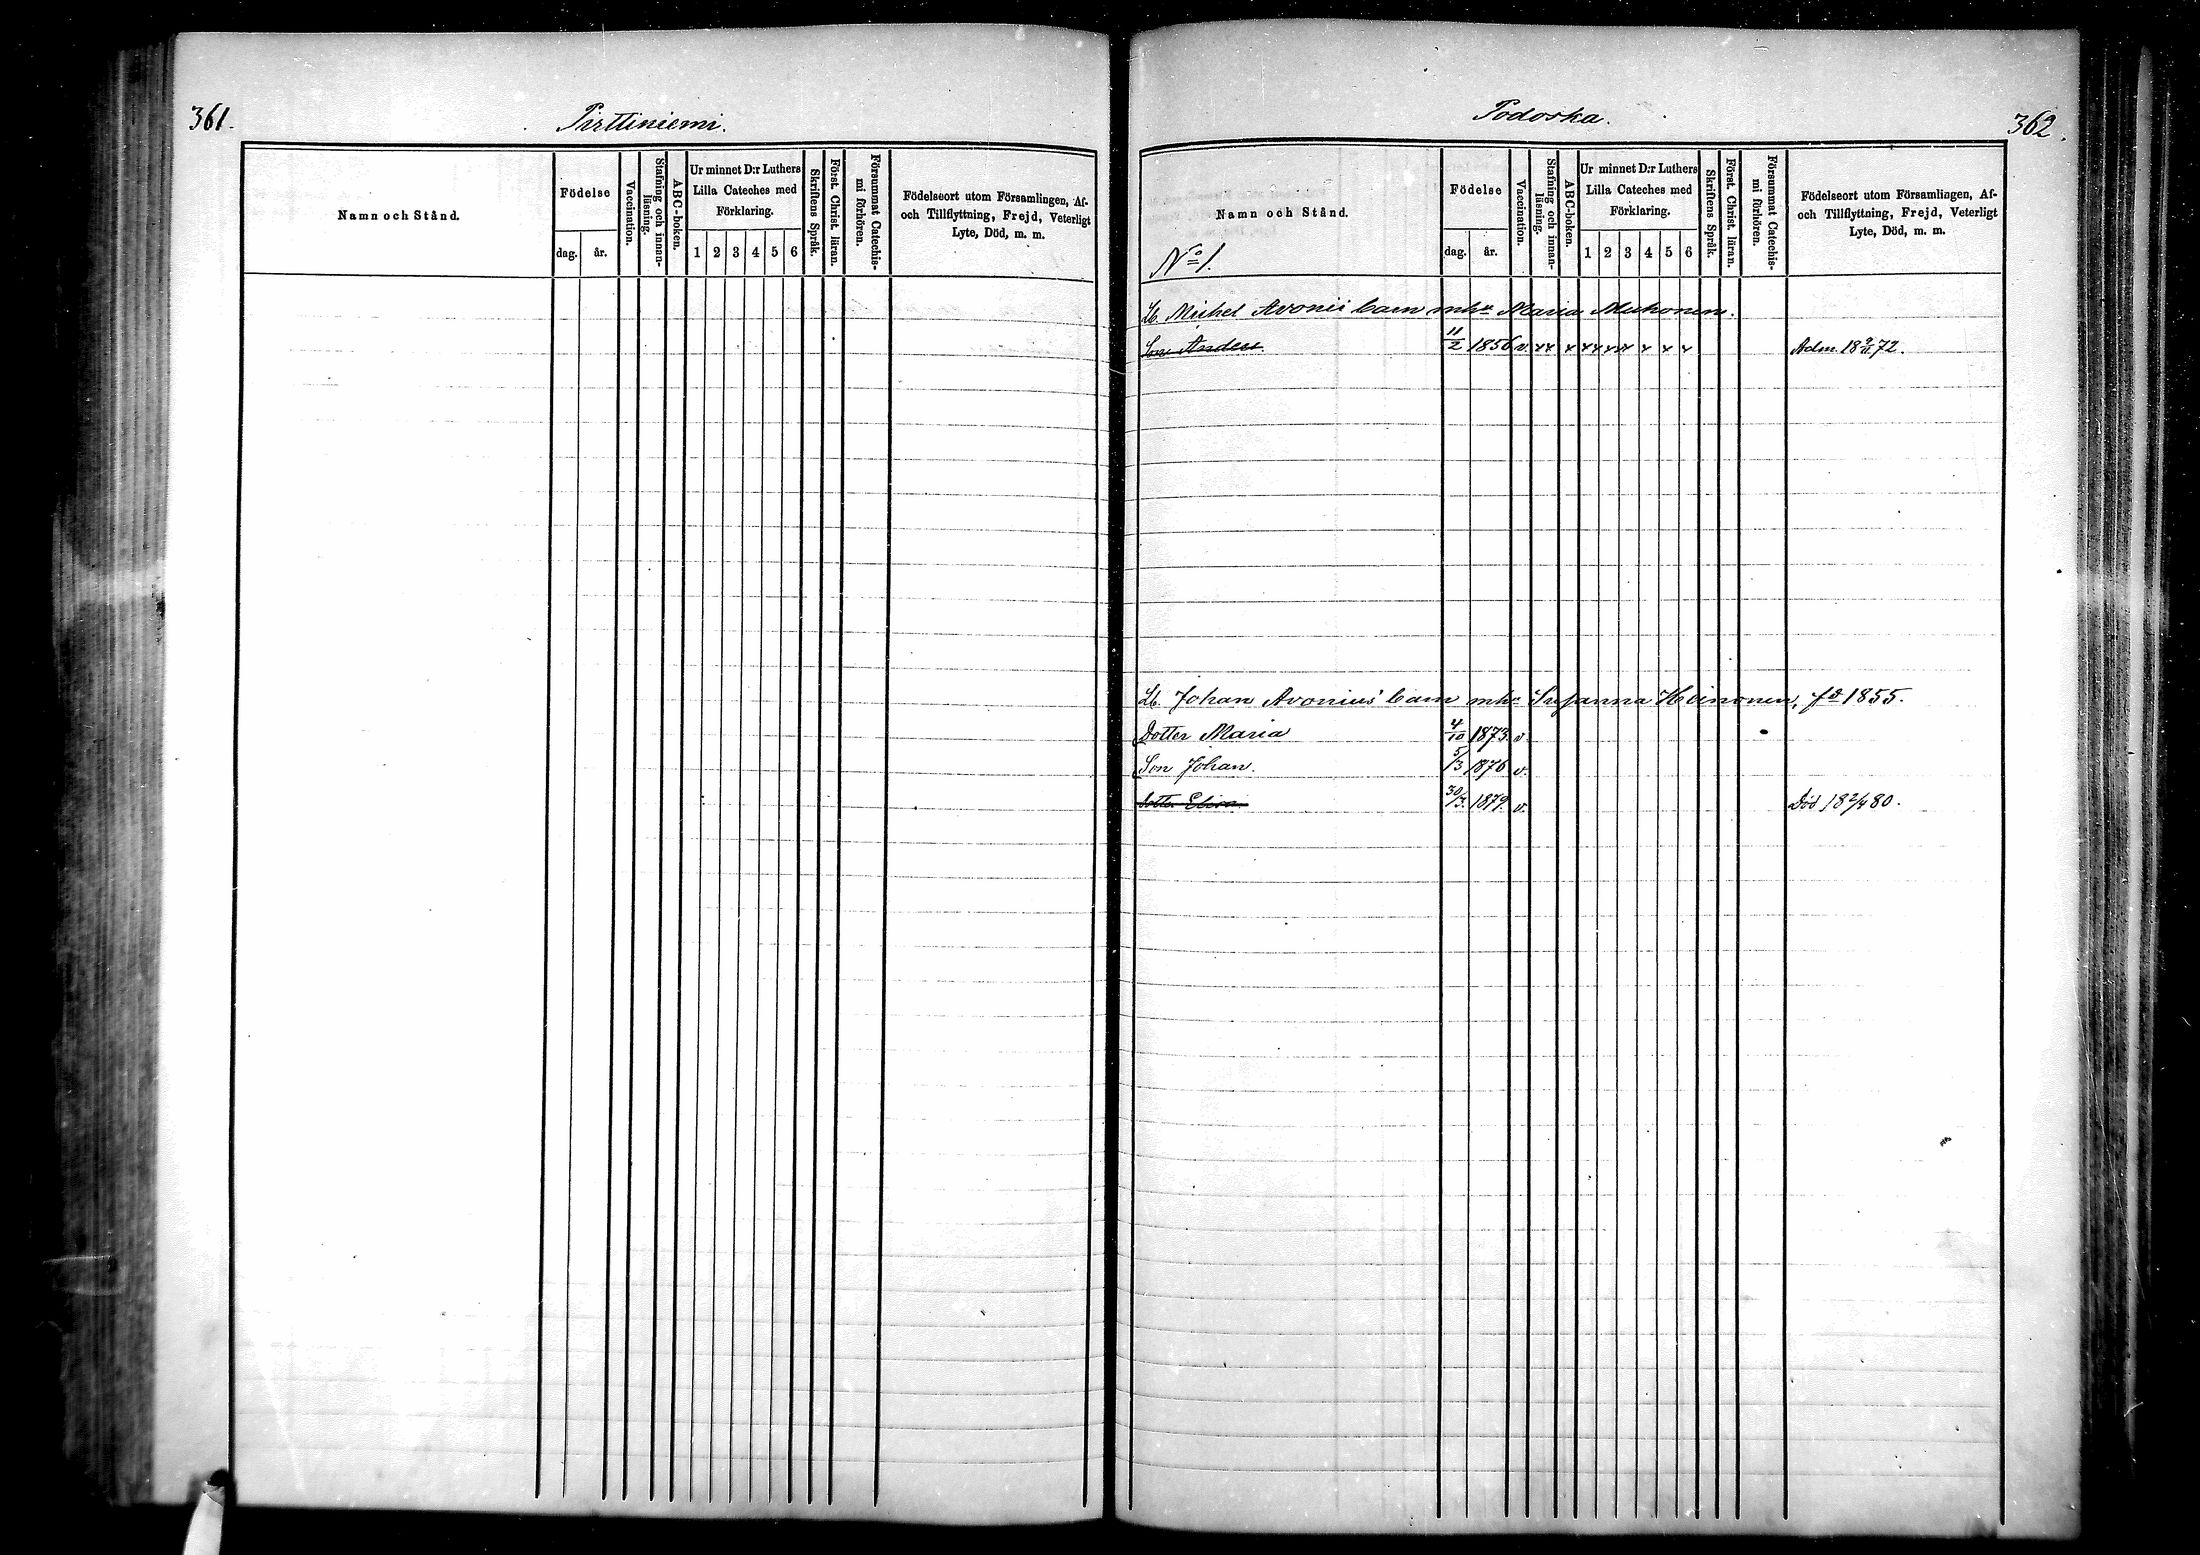 361.
Pirttiniemi.
Namn och Stånd.
Födelse
dag. år.
Vaccination.
Stafning och innan-
läsning.
ABC-boken.
Ur minnet D:r Luthers
Lilla Cateches med
Förklaring.
1 2 3 4 5 6
Skriftens Språk.
Först. Christ. läran.
Försummat Catechis-
mi förhören.
Födelseort utom Församlingen, Af-
och Tillflyttning, Frejd, Veterligt
Lyte, Död, m. m.
Podoska.
362.
Namn och Stånd.
No 1.
Födelse
dag. år.
Vaccination.
Stafning och innan-
läsning.
ABC-boken.
Ur minnet D:r Luthers
Lilla Cateches med
Förklaring.
1 2 3 4 5 6
Skriftens Språk.
Först. Christ. läran.
Försummat Catechis-
mi förhören.
Födelseort utom Församlingen, Af-
och Tillflyttning, Frejd, Veterligt
Lyte, Död, m. m.
Lb. Michel Avonii barn mhu Maria Muhonen.
Son Anders. 11/2 1856 v. Adm. 18 72.
Lb. Johan Avonius' barn mhu Susanna Heinonen, fd 1855.
Dotter Maria 4/10 1873. v.
Son Johan. 5/3 1876 v.
Dotter Elisa 30/3. 1879. v. Död 18 2/4 80.